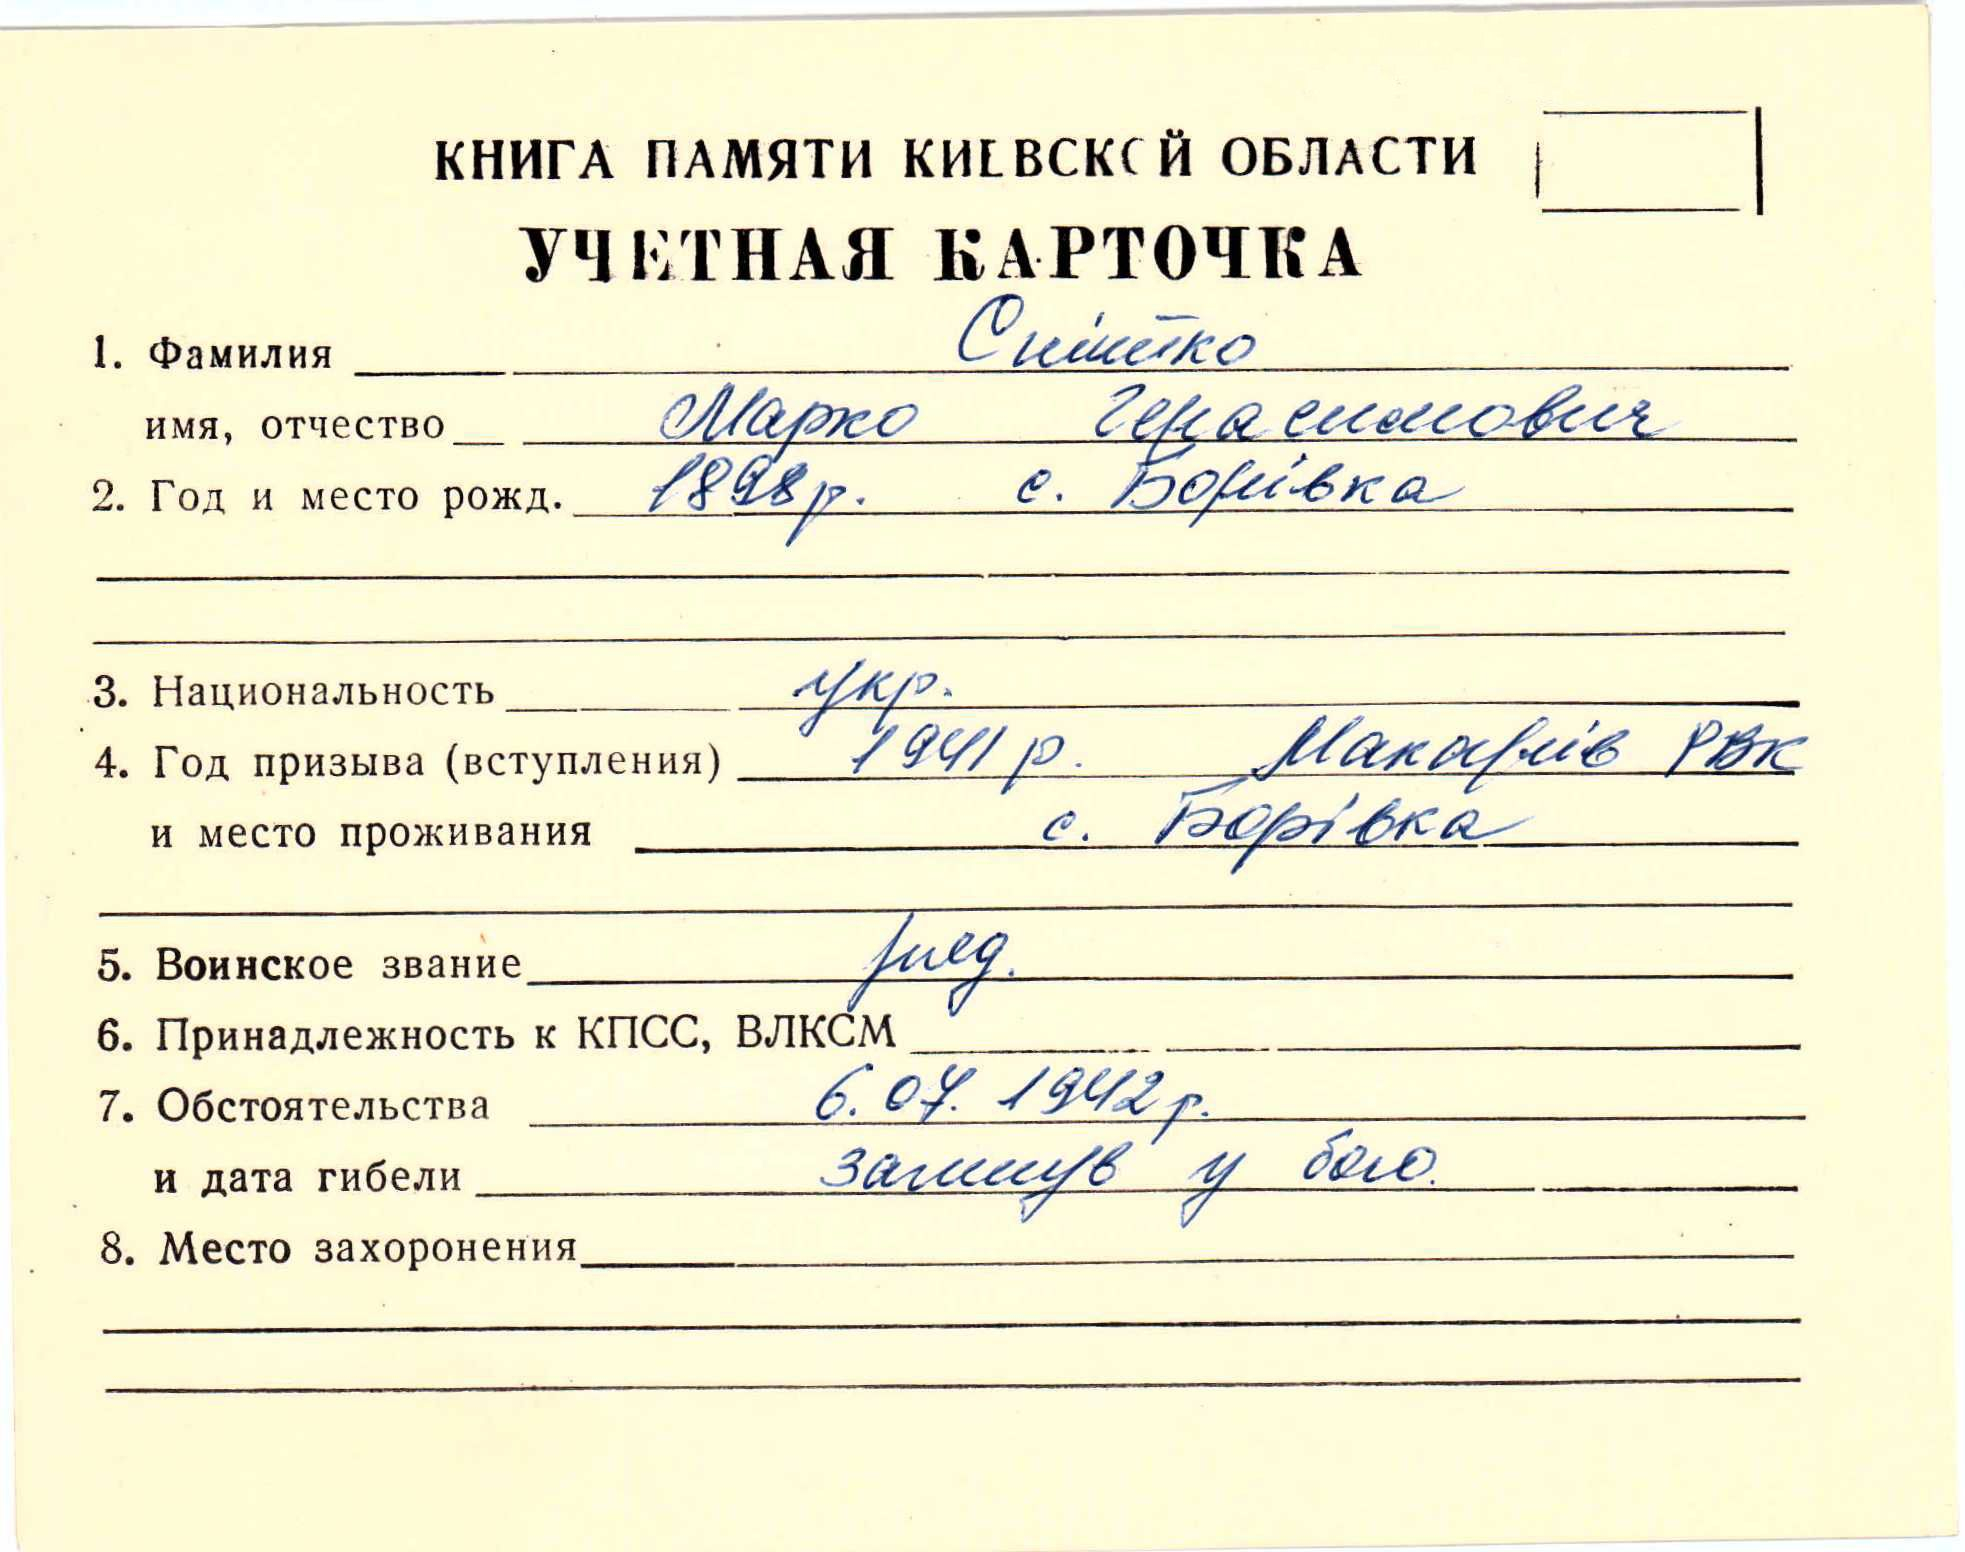 КНИГА ПАМЯТИ КИЕВСКОЙ ОБЛАСТИ
УЧЕТНАЯ КАРТОЧКА
1. Фамилия
имя, отчество Марко Герасимович
2. Год и место рожд. 1898 р. с. Борівка
3. Национальность укр.
4. Год призыва (вступления) 1941 р. Макарів РВК
и место проживания с. Борівка
5. Воинское звание
6. Принадлежность к КПСС, ВЛКСМ
7. Обстоятельства 6.07.1942 р.
и дата гибели загинув у бою.
8. Место захоронения